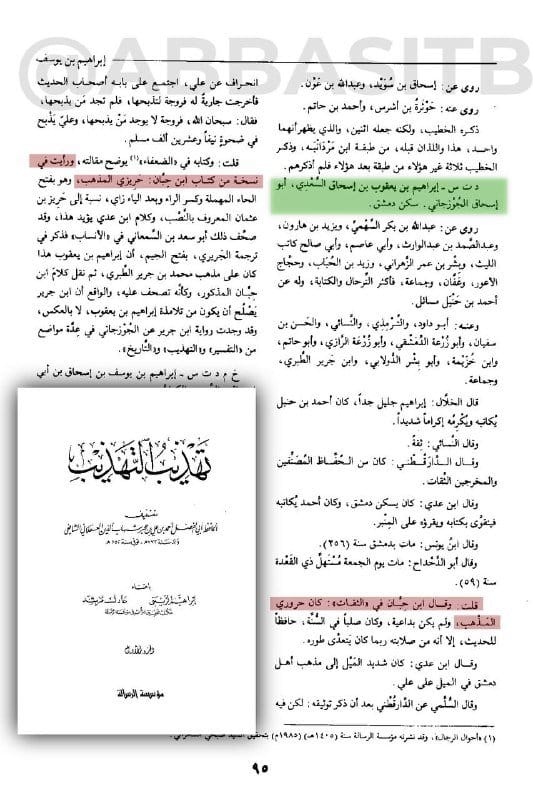 @ARBASITB
إبراهيم بن يوسف
روى عن: إسحاق بن سُوَيْد، وعبدالله بن عَوْن.
روى عنه: حَوْثَرَة بن أشرس، وأحمد بن حاتم.
ذكره الخطيب، ولكنه جعله اثنين، والذي يظهر أنهما
واحد، هذا واللذان قبله، من طبقة ابن مَرْدَانَبَه، وذكر
الخطيب ثلاثة غير هؤلاء من طبقة بعد هؤلاء فلم أذكرهم.
د ت س ـ إبراهيم بن يعقوب بن إسحاق السَّعْدي، أبو
إسحاق الجُوْزجاني. سكن دمشق.
روى عن: عبدالله بن بكر السَّهْمِي، ويزيد بن هارون،
وعبدالصَّمد بن عبدالوارث، وأبي عاصم، وأبي صالح كاتب
الليث، وبِشْر بن عمر الزَّهراني، وزيد بن الحُبَاب، وحجَّاج
الأعور، وعَفَّان، وجماعة، فأكثر التِّرحال والكتابة، وله عن
أحمد بن حَنْبَل مسائل.
وعنه: أبو داود، والتِّرْمِذي، والنَّسائي، والحَسَن بن
سفيان، وأبو زُرْعة الدِّمَشْقي، وأبو زُرْعة الرَّازي، وأبو حاتم،
وابن خُزَيْمة، وأبو بِشْر الدُّولابي، وابن جَرير الطَّبري،
وجماعة.
قال الخَلَّال: إبراهيم جليل جداً، كان أحمد بن حنبل
يُكاتبه ويُكْرِمُه إكراماً شديداً.
وقال النَّسائي: ثقةٌ.
وقال الدَّارَقُطْني: كان من الحُفَّاظ المُصَنِّفين
والمخرجين الثِّقات.
وقال ابن عدي: كان يسكن دمشق، وكان أحمد يُكاتبه
فيتقوَّى بكتابه ويقرؤه على المِنبر.
وقال ابنُ يونُس: مات بدمشق سنة (٢٥٦).
وقال أبو الدَّحْدَاح: مات يوم الجمعة مُسْتَهلَّ ذي القَعْدة
سنة (٥٩).
قلت: وقال ابن حِبَّان في «الثقات»: كان حَروري
المَذْهب، ولم يكن بداعية، وكان صلباً في السُّنَّة، حافظاً
للحديث، إلا أنه من صلابته ربما كان يتعدَّى طوره.
وقال ابن عدي: كان شديد المَيْل إلى مذهب أهل
دمشق في الميل على علي.
وقال السُّلَمي عن الدَّارقُطْني بعد أن ذكر توثيقه: لكن فيه
انحراف عن علي، اجتمع على بابه أصحاب الحديث
فأخرجت جاريةٌ له فروجة لتذبحها، فلم تجد مَن يذبحها،
فقال: سبحان الله، فروجة لا يوجد مَنْ يذبحها، وعليّ يَذْبح
في ضحوةٍ نيِّفاً وعشرين ألف مسلم.
قلت: وكتابه في «الضعفاء»(١) يوضح مقالته، ورأيت في
نسخة من كتاب ابن حِبّان: حَرِيزي المذهب، وهو بفتح
الحاء المهملة وكسر الراء وبعد الياء زاي، نسبة إلى حَرِيز بن
عثمان المعروف بالنَّصْب، وكلام ابن عدي يؤيد هذا، وقد
صحَّف ذلك أبو سعد بن السَّمعاني في «الأنساب» فذكر في
ترجمة الجَريري، بفتح الجيم، أن إبراهيم بن يعقوب هذا
كان على مذهب محمد بن جرير الطَّبري، ثم نقل كلامَ ابن
حِبَّان المذكور، وكأنه تصحف عليه، والواقع أن ابن جرير
يَصْلُح أن يكون من تلامذة إبراهيم بن يعقوب، لا بالعكس،
وقد وجدت رواية ابن جرير عن الجُوْزجاني في عِدَّة مواضع
من «التفسير» و«التهذيب» و«التَّاريخ».
خ م د ت س ـ إبراهيم بن يوسف بن إسحاق بن أبي
تهذيب التهذيب
تصنيف
الجزء الأول
مؤسسة الرسالة
(١) «أحوال الرجال»، وقد نشرته مؤسسة الرسالة سنة (١٤٠٥هـ) (١٩٨٥م) بتحقيق السيد صبحي السامرائي.
٩٥